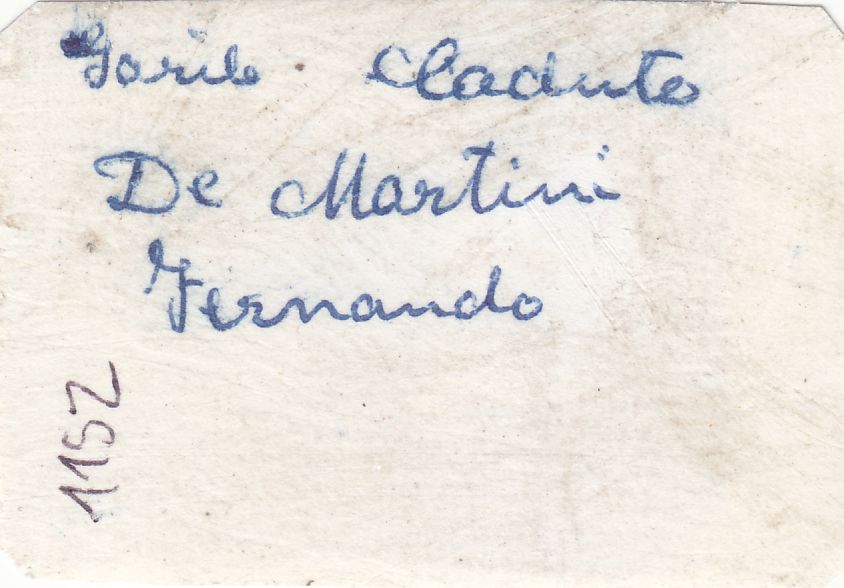 Caduto
De Martini
Fernando
1152